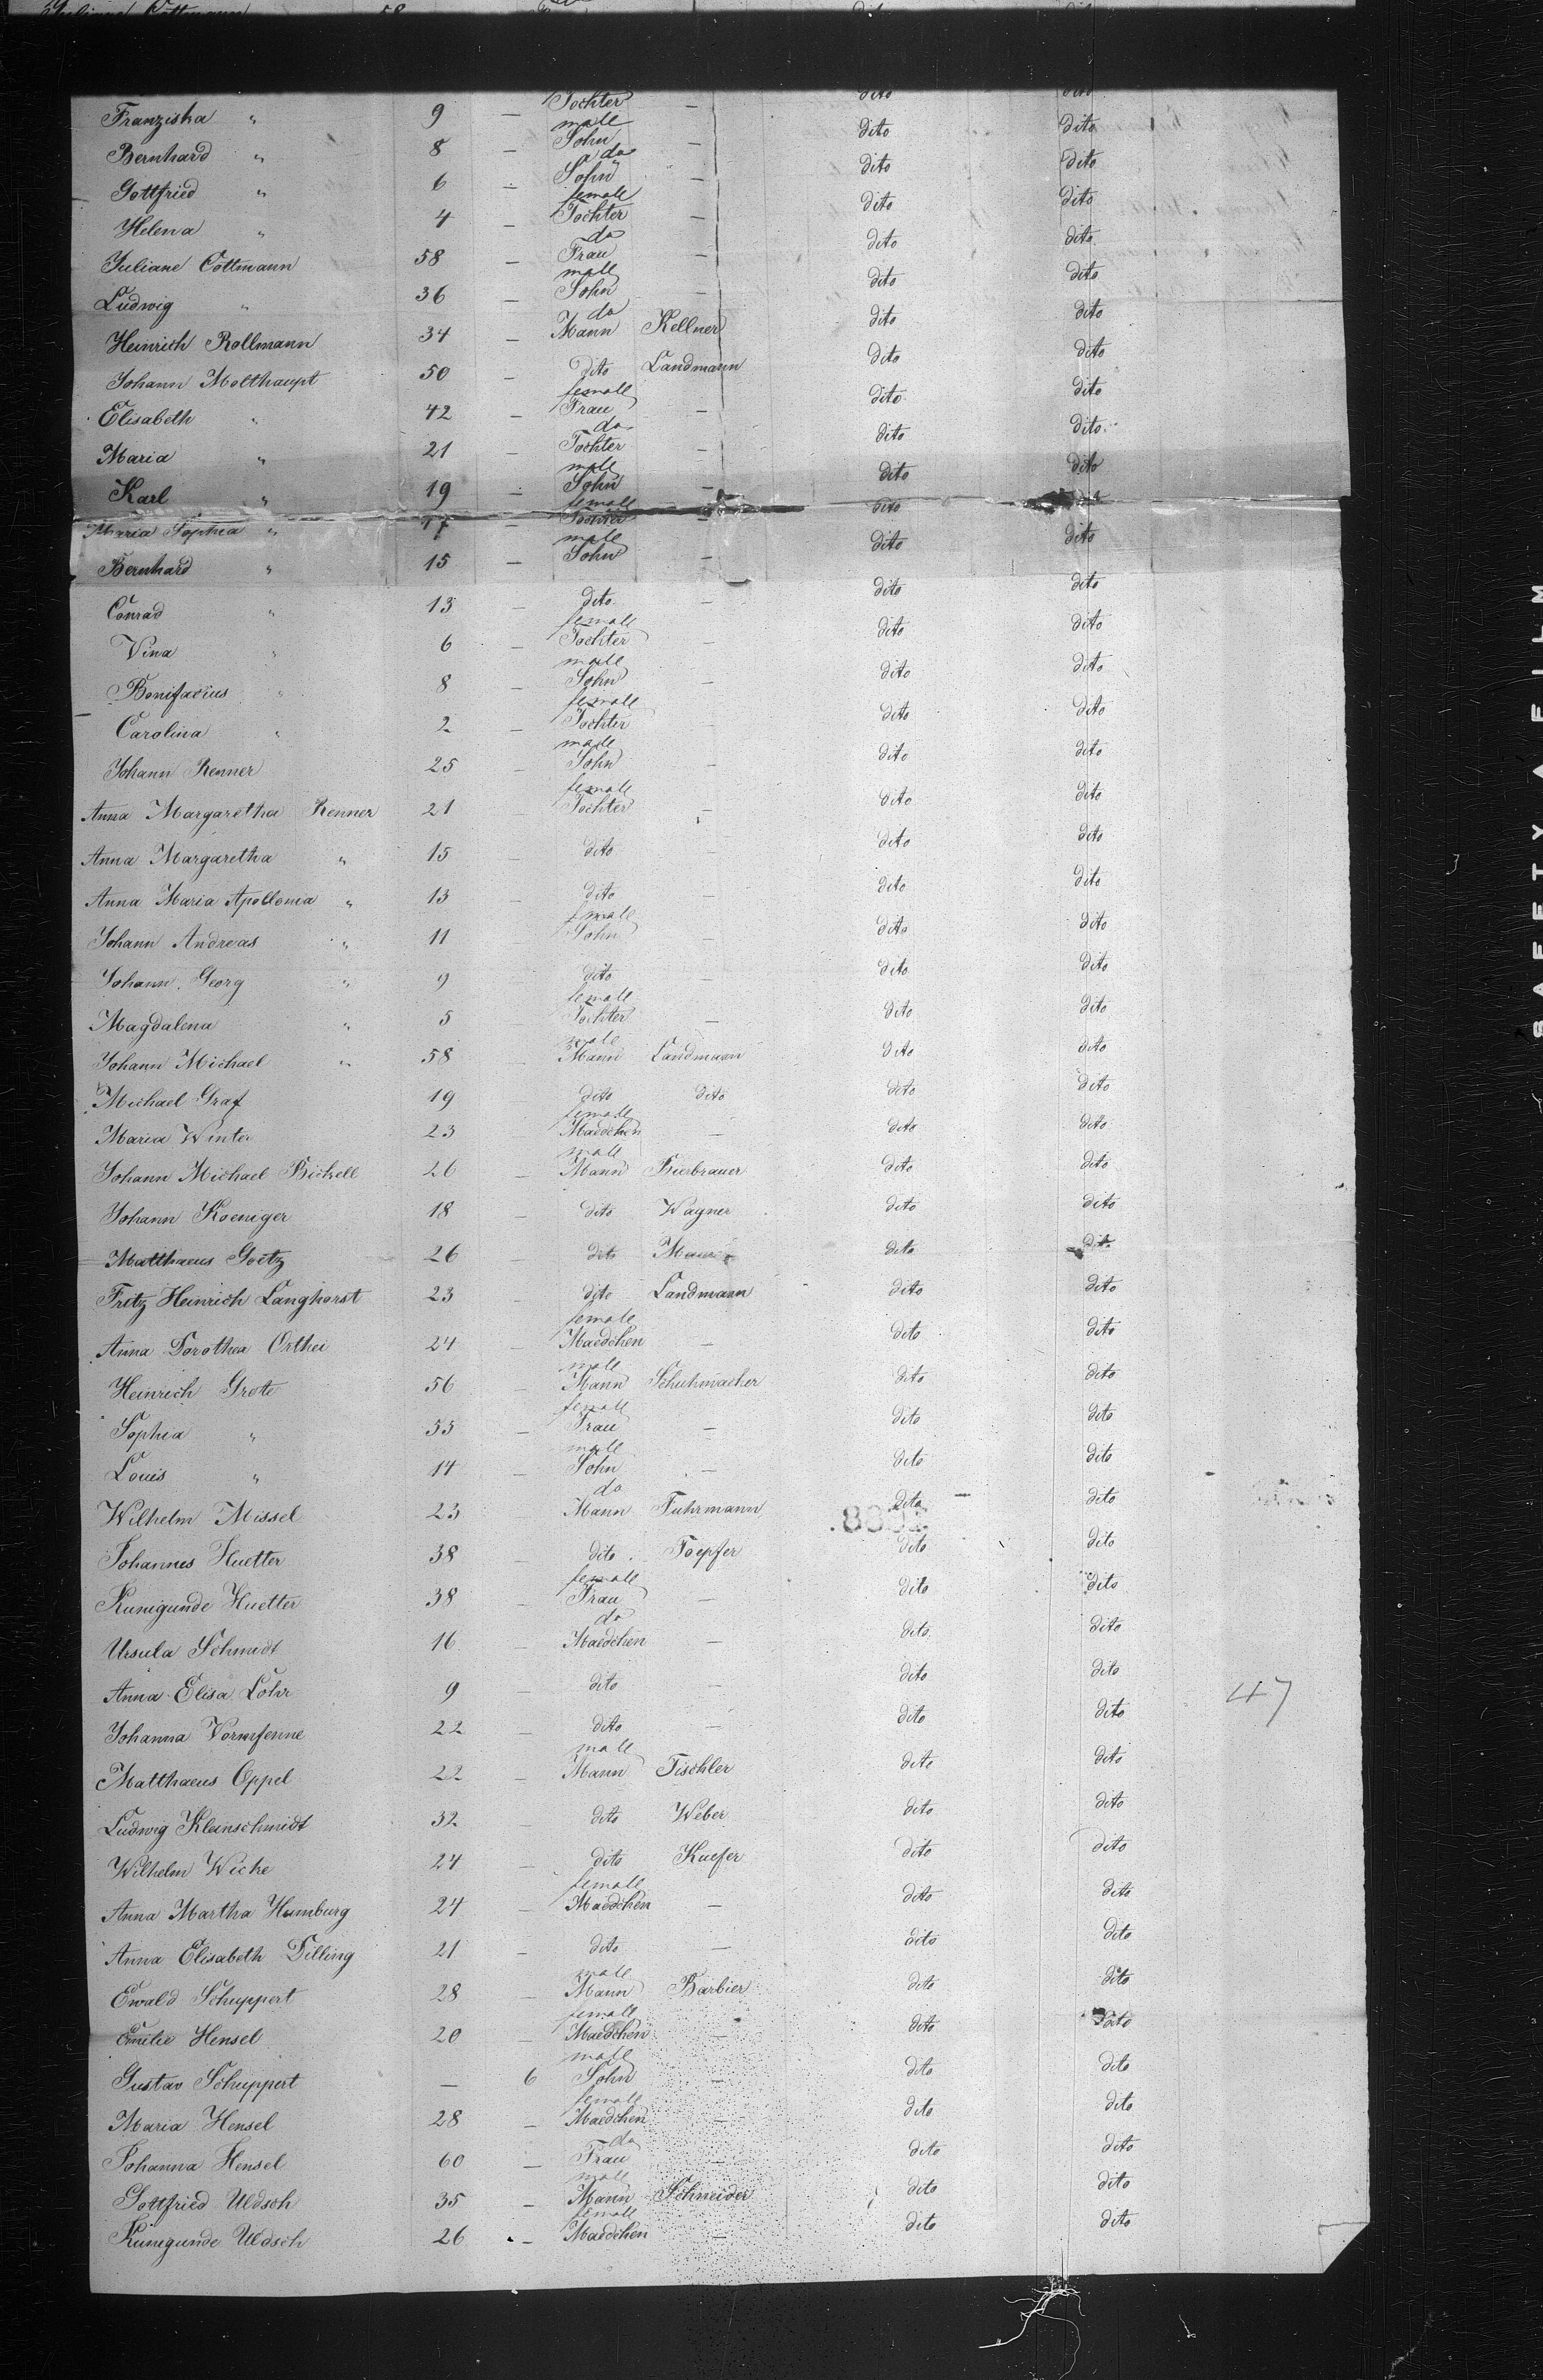 Franzisha " 9 — Tochter — dito dito
male
Bernhard " 8 — Sohn — dito dito
do
Gottfried " 6 — Sohn — dito dito
female
Helena " 4 — Tochter — dito dito
do
Juliane Cottmann 58 — Frau — dito dito
male
Ludwig " 36 — Sohn — dito dito
do
Heinrich Rollmann 34 — Mann Kellner dito dito
Johann Molthaupt 50 — dito Landmann dito dito
female
Elisabeth " 42 — Frau — dito dito
do
Maria " 21 — Tochter — dito dito
male
Karl " 19 — Sohn — dito dito
female
Maria Sophia " 17 — Tochter — dito
male
Bernhard " 15 — Sohn — dito dito
Conrad " 13 — dito — dito dito
female
Vina " 6 — Tochter — dito dito
male
Bonifacius " 8 — Sohn — dito dito
female
Carolina " 2 — Tochter dito dito
male
Johann Renner 25 — Sohn — dito dito
female
Anna Margaretha Renner 21 — Tochter — dito dito
Anna Margaretha " 15 — dito — dito dito
Anna Maria Apollonia " 13 — dito — dito dito
male
Johann Andreas " 11 Sohn — dito dito
Johann Georg " 9 dito — dito dito
female
Magdalena " 5 Tochter — dito dito
male
Johann Michael " 58 Mann Landmann dito dito
Michael Graf 19 dito dito dito dito
female
Maria Winter 23 Maedchen — dito dito
male
Johann Michael Bickell 26 — Mann Bierbrauer dito dito
Johann Koeniger 18 — dito Wagner dito dito
Matthaeus Goetz 26 — dito dito dito
Fritz Heinrich Langhorst 23 — dito Landmann dito dito
female
Anna Dorothea Orthei 24 — Maedchen — dito dito
male
Heinrich Grote 56 — Mann Schuhmacher dito dito
female
Sophia " 53 — Frau — dito dito
male
Louis " 14 — Sohn — dito dito
do
Wilhelm Missel 23 Mann Fuhrmann dito dito
Johannes Huetter 38 — dito Toepfer dito dito
female
Kunigunde Huetter 38 — Frau — dito dito
do
Ursula Schmidt 16 — Maedchen — dito dito
Anna Elisa Lohr 9 — dito — dito dito
47
Johanna Vormfenne 22 — dito — dito dito
male
Matthaeus Oppel 22 — Mann Tischler dito dito
Ludwig Kleinschmidt 32 — dito Weber dito dito
Wilhelm Wicke 24 — dito Kuefer dito dito
female
Anna Martha Humburg 24 — Maedchen — dito dito
Anna Elisabeth Dilling 21 — dito — dito dito
male
Ewald Schuppert 28 — Mann Barbier dito dito
female
Emilie Hensel 20 — Maedchen — dito dito
male
Gustav Schuppert — 6 Sohn — dito dito
female
Maria Hensel 28 — Maedchen — dito dito
do
Johanna Hensel 60 — Frau — dito dito
male
Gottfried Uldsch 35 — Mann Schneider dito dito
female
Kunigunde Uldsch 26 — Maedchen — dito dito
SAFETY FILM